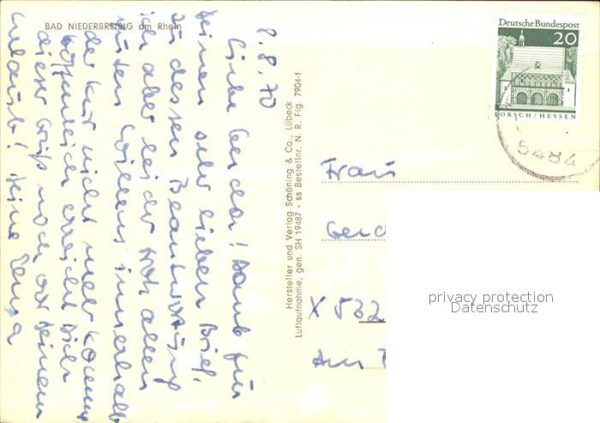 BAD NIEDERBREISIG am Rhein
8.8.70
Liebe Gerda! Dank für
Deinen sehr lieben Brief,
zu dessen Beantwortung
ich aber leider trotz allen
guten Willens innerhalb
der Kur nicht mehr komme.
Hoffentlich erreicht Dich
dieser Gruß noch vor Deinem
Urlaub! Deine
Hersteller und Verlag Schöning & Co., Lübeck
Luftaufnahme, gen. SH 19487 - ss Bestellnr. N. R. Flg. 7904-f
Deutsche Bundespost
20
LORSCH/HESSEN
5484
Frau
X 532
Am
privacy protection
Datenschutz